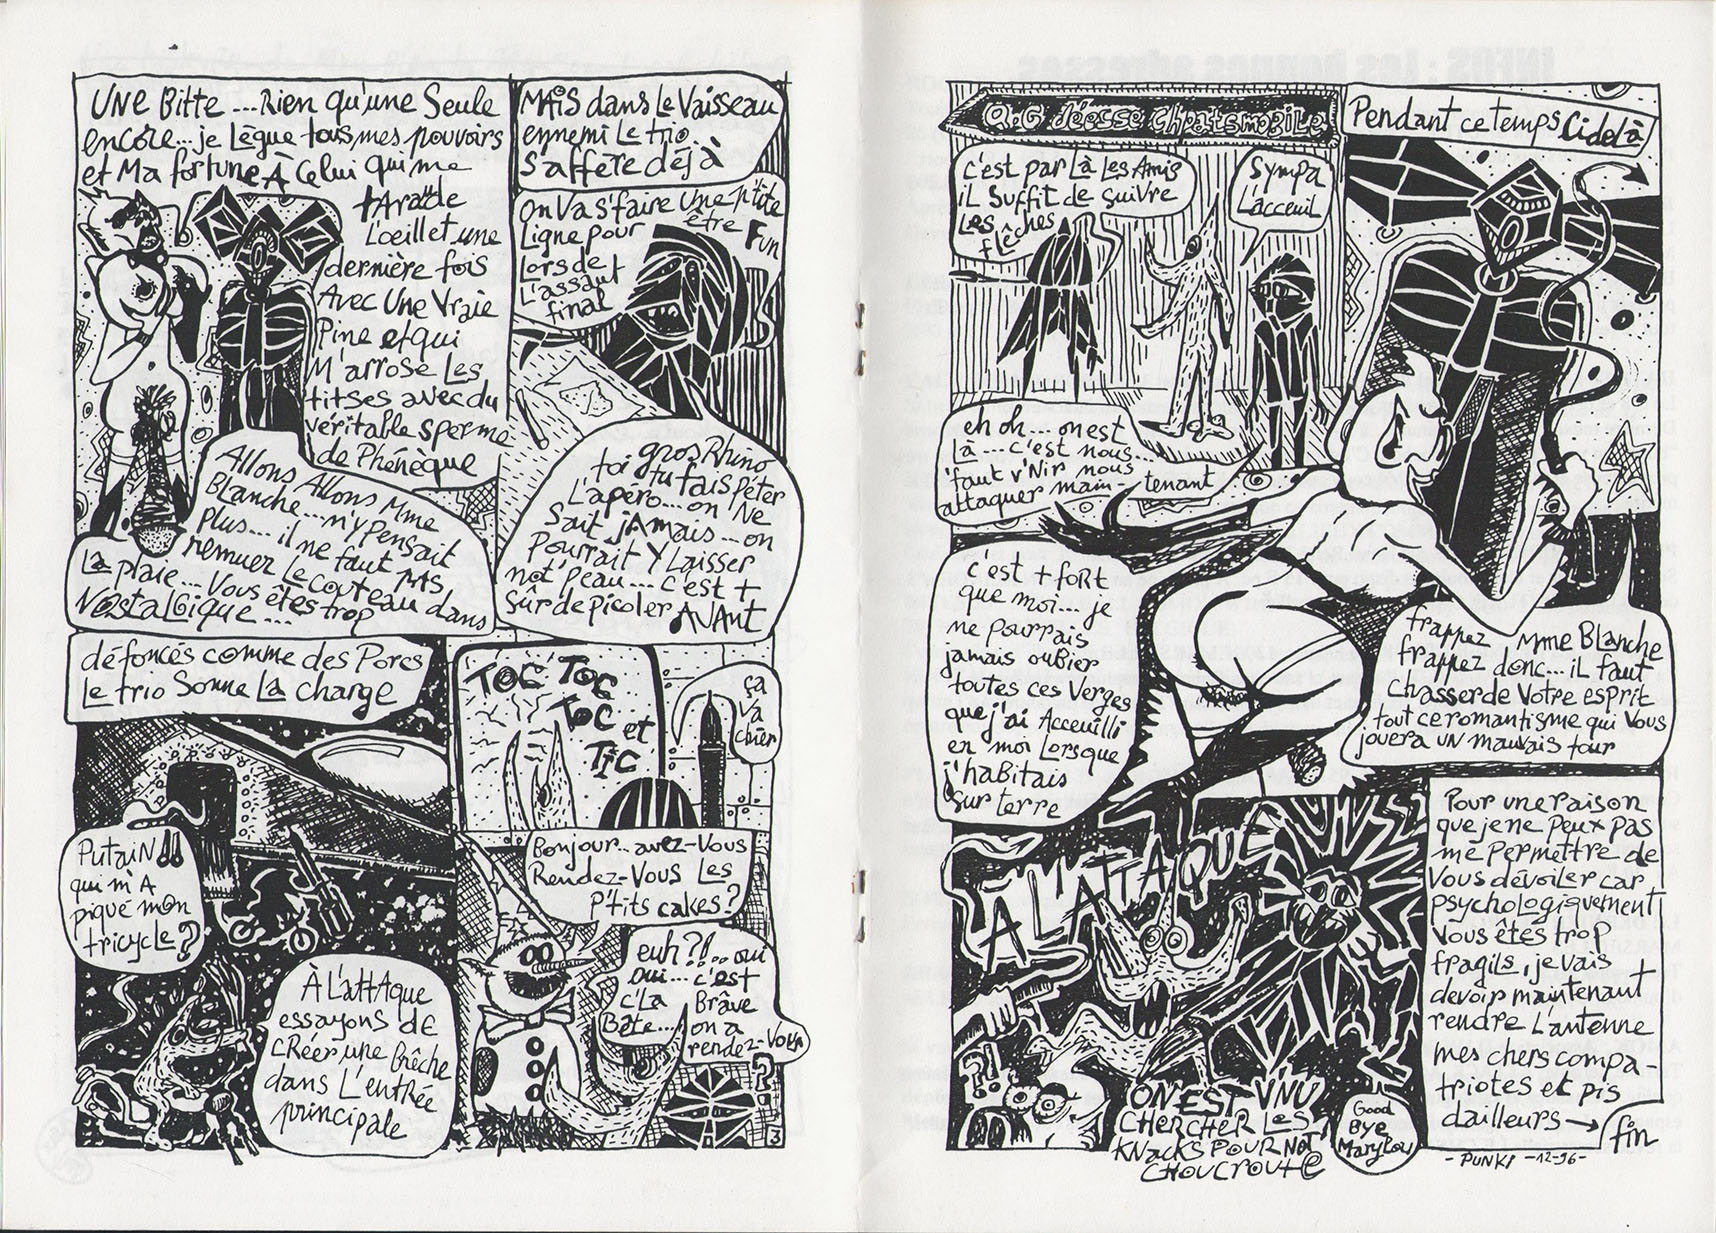 UNE Bitte ... Rien qu'une Seule
encore... je Lègue tous mes pouvoirs
et Ma fortune À Celui qui me
tAraude
L'oeillet une
dernière fois
Avec Une Vraie
Pine et qui
M'arrose Les
titses avec du
véritable sperme
de Phénèque
Allons Allons Mme
Blanche... n'y Pensait
Plus... il ne faut PAS
remuer Le couteau dans
La plaie... Vous êtes trop
NostalGique...
MAiS dans Le Vaisseau
ennemi Le trio
S'affete déjà
On Va s'faire Une p'tite
Ligne pour être Fun
Lors de
L'assaut
final
toi gros Rhino
tu fais Péter
L'apéro... on Ne
Sait jAmais... on
Pourrait Y Laisser
not' Peau... c'est +
Sûr de picoler AVAnt
défoncés comme des Porcs
Le trio Sonne La charge
Putain!!
qui m'A
piqué mon
tricycle?
À L'attAque
essayons de
CRéer une Brêche
dans L'entrée
principale
TOC TOC
TOC et
TIC
ça
va
chier
Bonjour... avez-Vous
Rendez-Vous Les
P'tits cakes?
euh?!.. oui
oui... c'est
c'La Brâve
Bâte... on a
rendez-Vous
??
3
Q.G déesse Chpatsmobile
c'est par Là Les Amis
il Suffit de Suivre
Les flêches
Sympa
L'acceuil
eh oh... on est
Là... c'est nous...
'faut v'Nir nous
attaquer main-tenant
Pendant ce temps Cidelà
c'est + fort
que moi... je
ne pourrais
jamais ouBier
toutes ces Verges
que j'ai Acceuilli
en moi Lorsque
j'habitais
Sur terre
frappez Mme Blanche
frappez donc... il faut
chasser de Votre esprit
tout ce romantisme qui Vous
jouera un mauvais tour
À L'ATTAQU
??
ON EST V'NU
CHERCHER LES
KNACKS POUR NOT'
CHOUCROUTE
Good
Bye
Marylou
Pour une raison
que je ne Peux pas
me Permettre de
Vous dévoiler car
psychologiquement
Vous êtes trop
fragils, je vais +
devoir maintenant
rendre L'antenne
mes chers compa-
triotes et pis
d'ailleurs →
fin
- PUNKI -12-96-